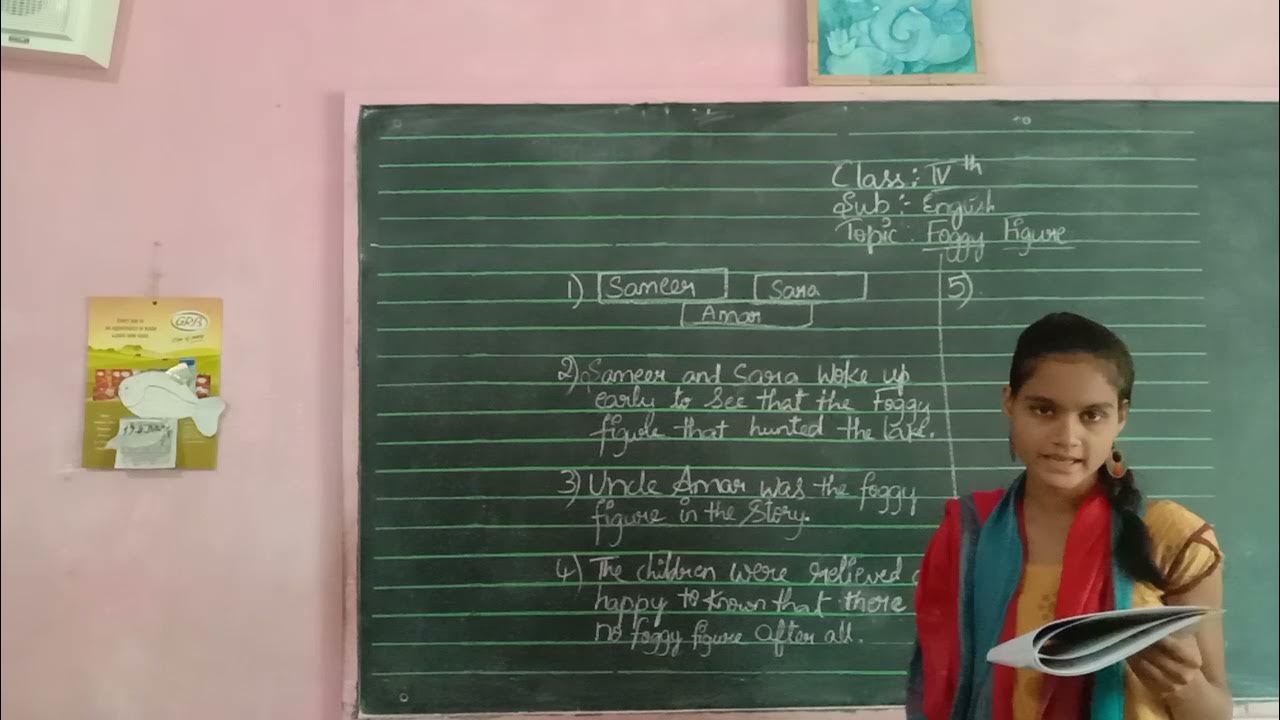 Class:- IVth
Sub:- English
Topic: Foggy Figure
1) Sameer Sara
Amar
2) Sameer and Sara woke up
early to see that the Foggy
figure that hunted the lake.
3) Uncle Amar was the foggy
figure in the Story.
4) The children were relieved
happy to known that there
no foggy figure after all.
5)
GRB